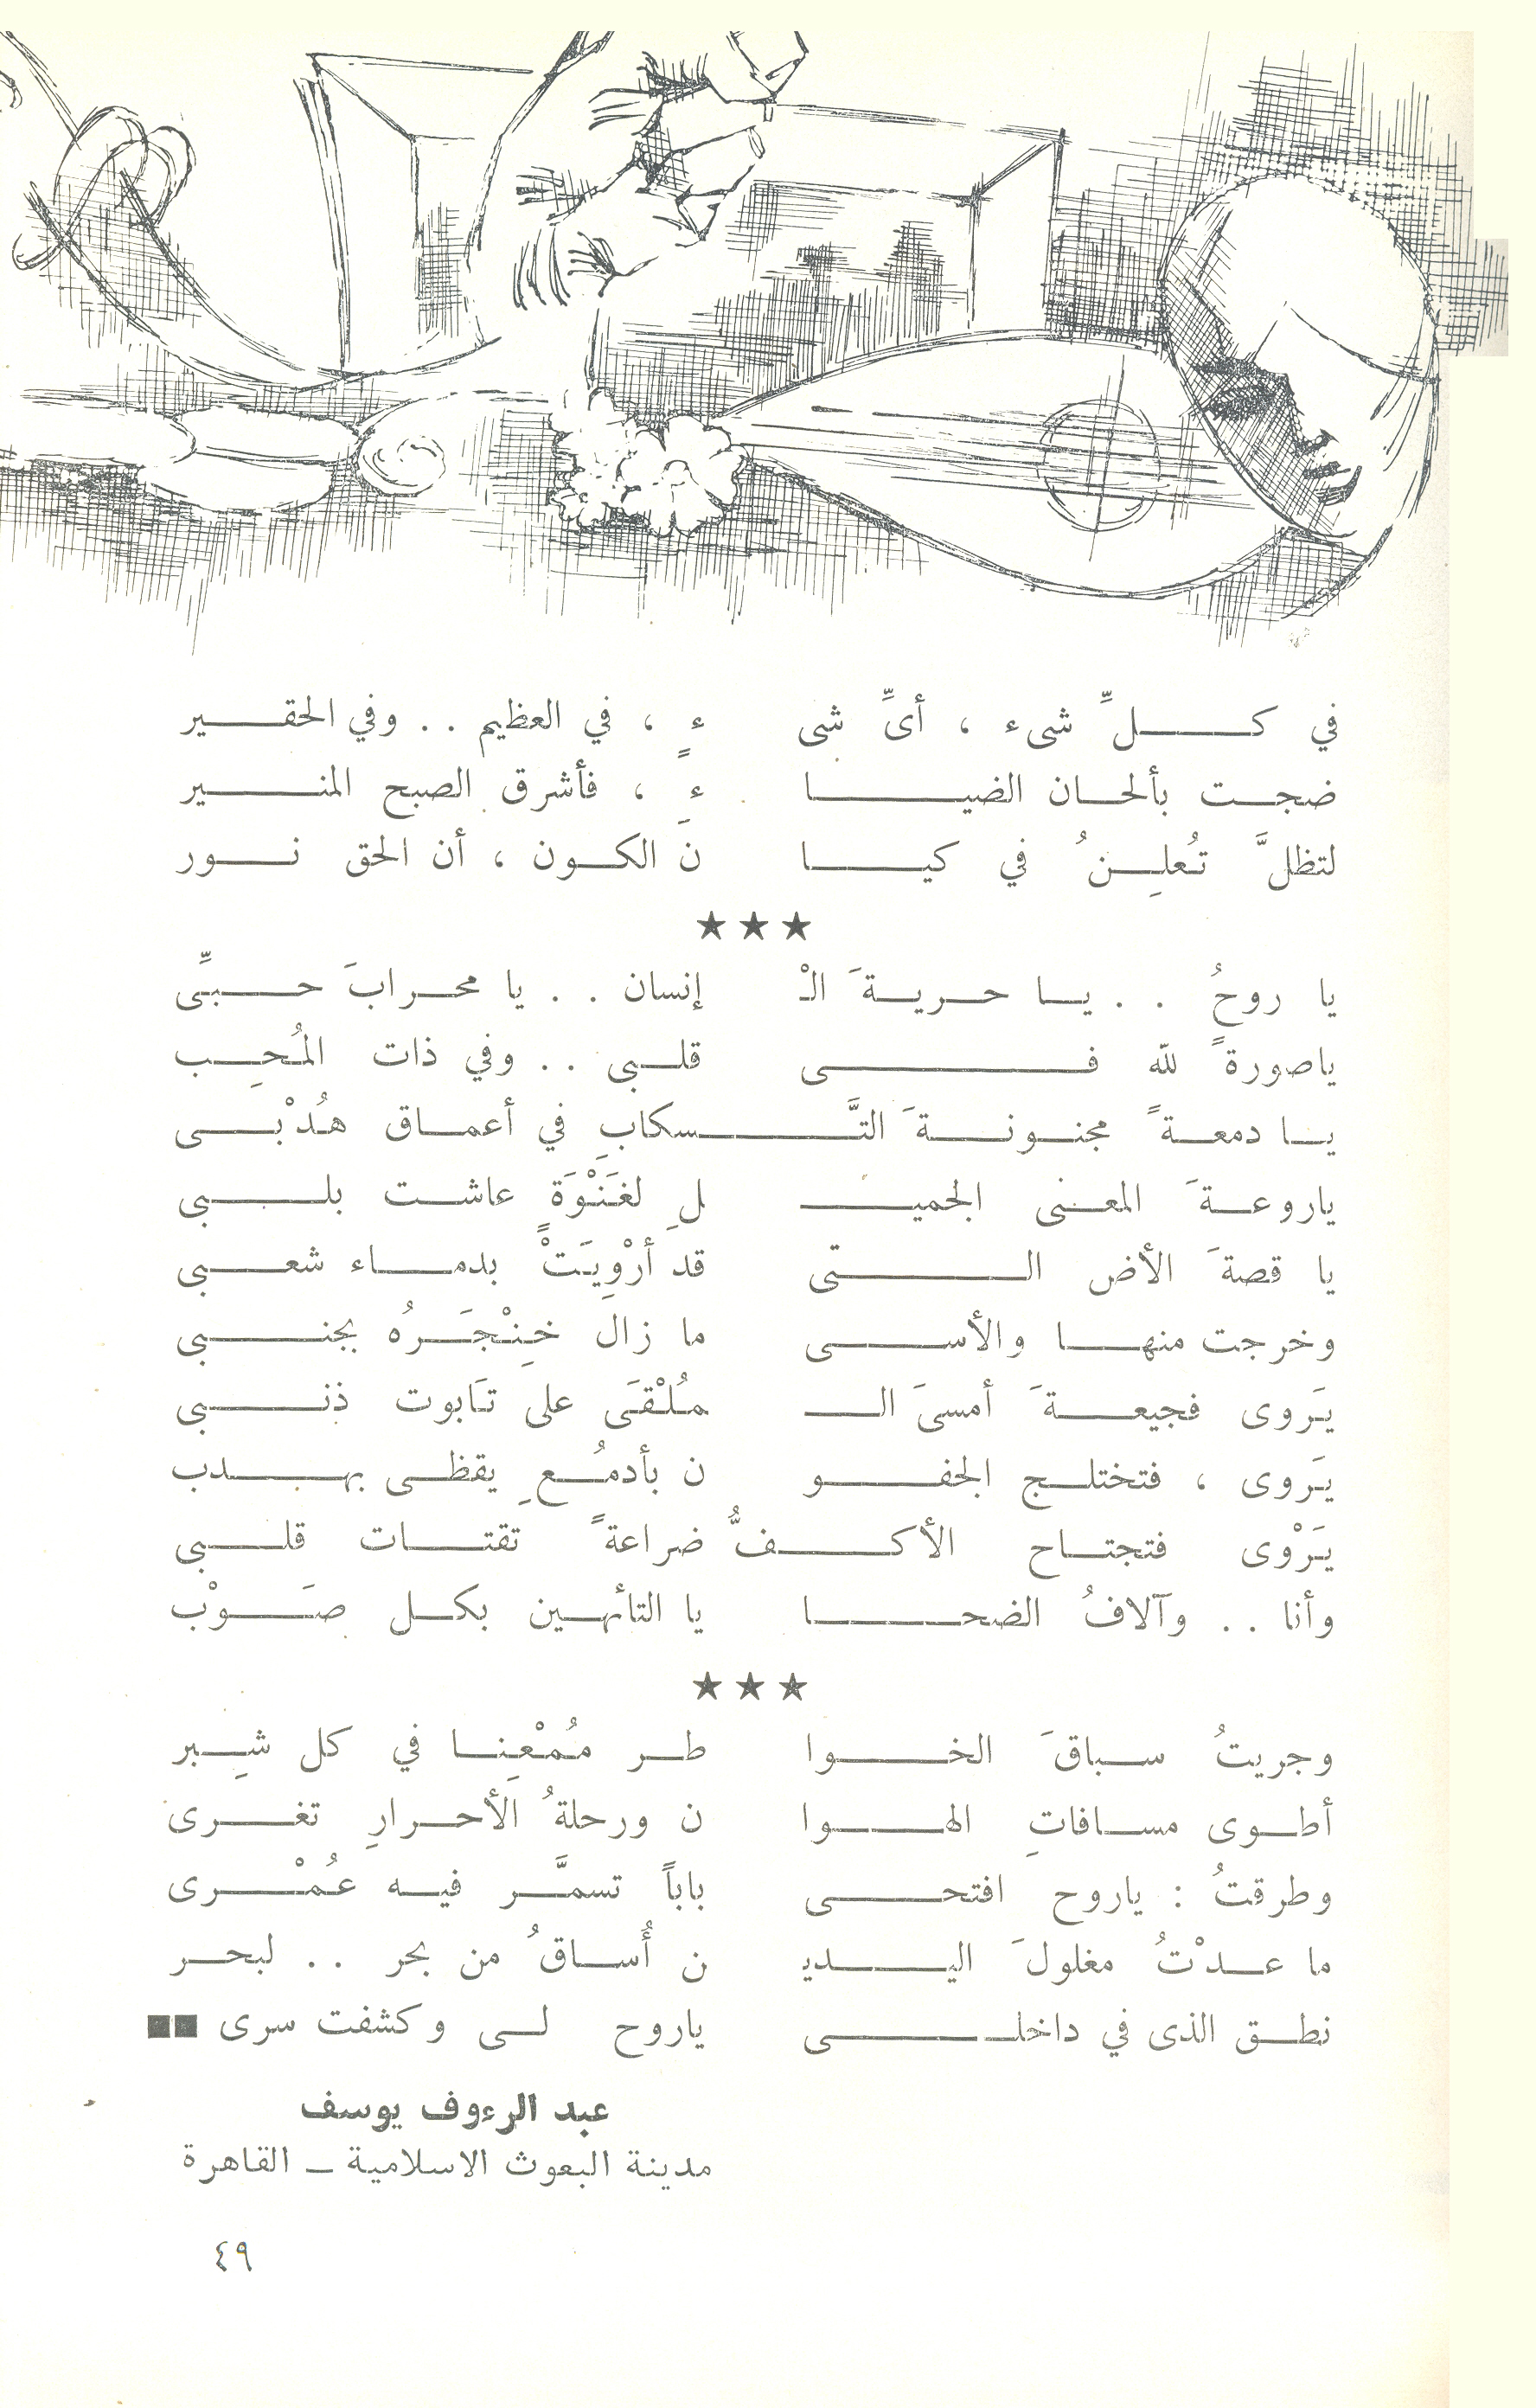 في كلِّ شىء ، أىِّ شى ءٍ ، في العظيم . . وفي الحقير
ضجت بألحان الضيا ءِ ، فأشرق الصبح المنير
لتظلَّ تُعلِنُ في كيا نَ الكون ، أن الحق نور
★★★
يا روحُ . . يا حريةَ الْ إنسان . . يا محرابَ حبِّى
ياصورةً لله فى قلبى . . وفي ذات المُحِب
يا دمعةً مجنونةَ التَّسكابِ في أعماق هُدْبى
ياروعةَ المعنى الجميـ لِ لغَنْوَةٍ عاشت بلبى
يا قصةَ الأض التى قد أرْوِيَتْ بدماء شعبى
وخرجت منها والأسى ما زال خِنْجَرُه بجنبى
يَروى فجيعةَ أمسىَ الـ مُلْقَى على تَابوت ذنبى
يَروى ، فتختلج الجفو ن بأدمُعِ يقظى بهدب
يَرْوى فتجتاح الأكفُّ ضراعةً تقتات قلبى
وأنا . . وآلافُ الضحا يا التأئهين بكل صَوْب
★★★
وجريتُ سباقَ الخوا طر مُمْعِنا في كل شِبر
أطوى مسافاتِ الهوا ن ورحلةُ الأحرارِ تغرى
وطرقتُ : ياروح افتحى باباً تسمَّر فيه عُمْرى
ما عدْتُ مغلولَ اليديـ ن أُساقُ من بحر . . لبحر
نطق الذى في داخلى ياروح لى وكشفت سرى ■■
عبد الرءوف يوسف
مدينة البعوث الاسلامية – القاهرة
٤٩